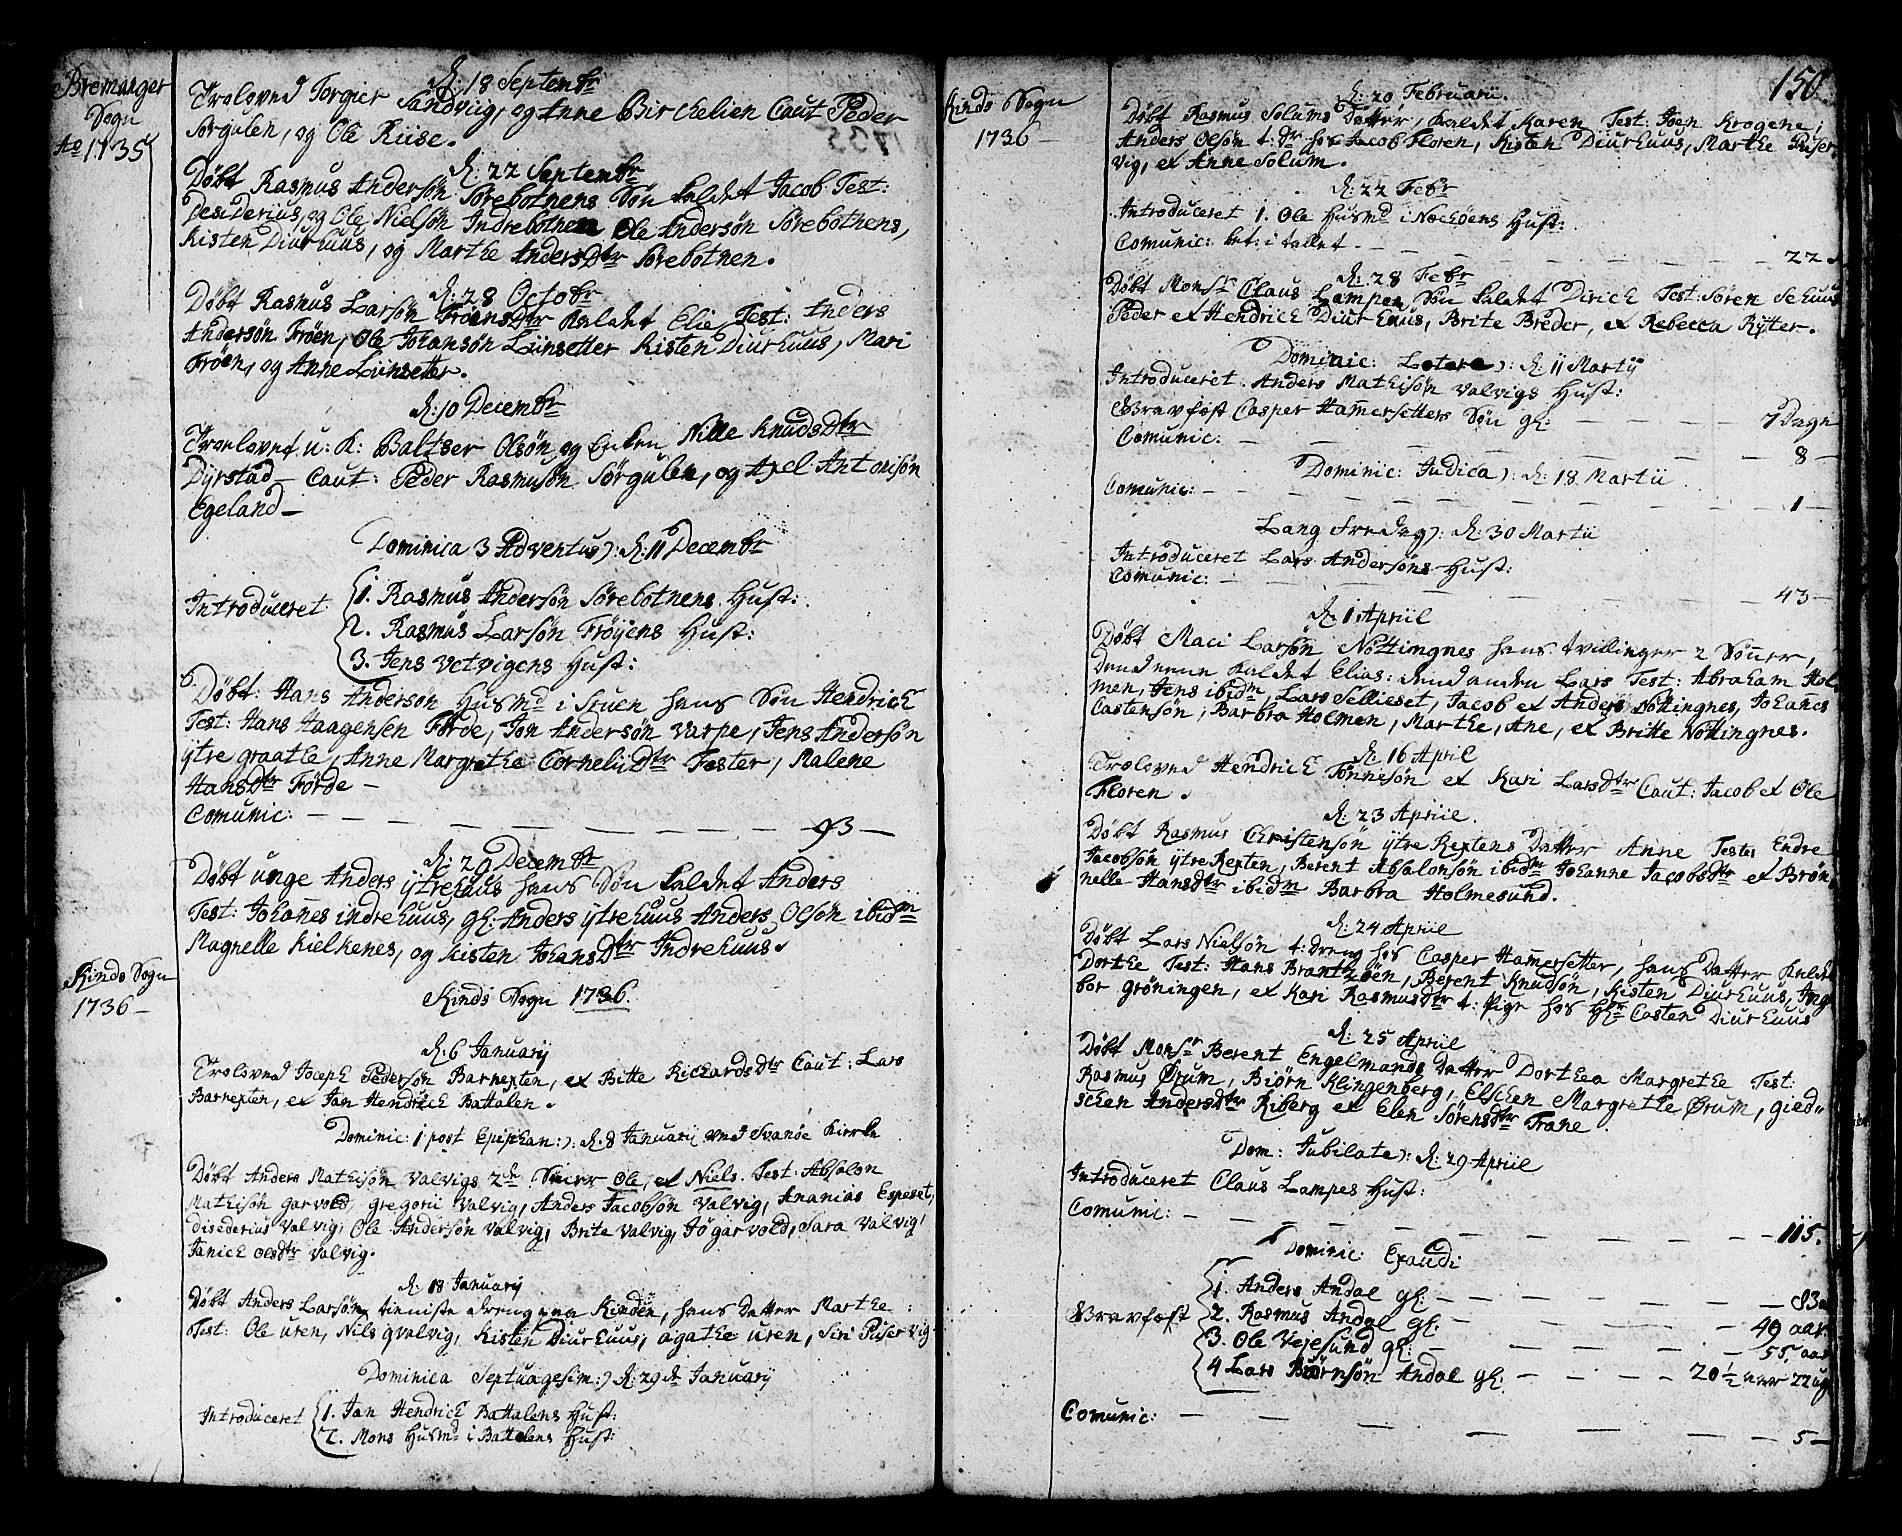 Bremanger
Sogn
Ao 1735
d: 18 Septembr
Troloved Torgier Sandviig, og Anne Birchelien Caut Peder
Sørgulen, og Ole Riise.
d: 22 Septembr
Døbt Rasmus Andersøn Sørebotnens Søn kaldet Jacob Test:
Desiderius, og Ole Nielsøn Indrebotnen Ole Andersøn Sørebotnens,
Kisten Diurhuus, og Marthe AndersDtr Sørebotnen.
d: 28 Octobr
Døbt Rasmus Larsøn FrøensDtr kaldet Elie Test: Anders
Andersøn Frøen, Ole Johansøn Liinsetter Kisten Diurhuus, Mari
Frøen, og Anne Liinsetter.
d: 10 Decembr
Troelovet u: K: Baltser Olsøn og Enken Nille KnudsDtr
Dyrstad – Caut: Peder Rasmusøn Sørgulen, og Axel Antonisøn
Egeland –
Dominica 3 Adventus): d: 11 Decembr
Introduceret
1. Rasmus Andersøn Sørebotnens Hust:
2. Rasmus Larsøn Frøyens Hust:
3. Jens Vetvigens Hust:
Døbt: Hans Andersøn Husmd i Stuen hans Søn Hendrich
Test: Hans Haagensen Førde, Jon Andersøn Varpe, Jens Andersøn
ytre graatle, Anne Margrethe CorneliiDtr Foster, Malene
HansDtr Førde –
Comunic: – – – 93 –
d: 29 Decembr
Døbt unge Anders ytrehuus hans Søn kaldet Anders
Test: Johañes indrehuus, gl: Anders ytrehuus Anders Olsøn ibidm
Magnelle Kielkenes, og Kisten JohansDtr Indrehuus.
Kinds Sogn
1736 –
Kinds Sogn 1736.
d: 6 Januarij
Trolovet Joseph Pedersøn Barnexten, et Bitte RichardsDtr Caut: Lars
Barnexten, et Jan Hendrich Battalen.
Dominic: 1 post Epiphan:): d: 8 Januarij ved Svanøe Kirke
Døbt Anders Mathisøn Valvigs 2de Søner Ole, et Niels. Test: Absalon
Mathisøn Garvold, gregorii Valvig, Anders Jacobsøn Valvig, Ananias Espeset,
Disederius Valvig, Ole Andersøn Valvig, Brite Valvig, Jo garvold, Sara Valvig,
Janich OlsDtr Valvig.
d: 18 Januarij
Døbt Anders Larsøn tieniste dreng paa Kinden, hans Datter Marthe
Test: Ole uren, Nils qvalvig, Kisten Diurhuus, agathe uren, Siri Puservig
Dominica Septuagesim:) d: 29de Januarij
Introduceret
1. Jan Hendrich Battalens Hust:
2. Mons Husmd i Battalens Hust:
Kinds Sogn
1736 –
150.
d: 20 Februarii.
Døbt Rasmus Solums Datter, kaldet Karen Test: Joen Krogene,
Anders Olsøn t: Dr hos Jacob Floren, Kisten Diurhuus, Marthe Puser
vig, et Anne Solum.
d: 22 Febr
Introduceret 1. Ole Husmd i Nochøens Hust:
Comunic: bet: i tallet – – – 22
d: 28 Febr
Døbt Monsr Claus Lampes Søn kaldet Dirich Test: Søren Schuus
Peder et Hendrich Diurhuus, Brite Breder, et Rebecca Rytter.
Dominic: Letare): d: 11 Martij
Introduceret Anders Mathisøn Valvigs Hust:
Gravfæst Casper Hamersetters Søn gl: – – – 7 Dage
Comunic: – – – 8 –
Dominic: Judica): d: 18 Martii
Comunic: – – – 1 –
Lang fredag): d: 30 Martii
Introduceret Lars Andersøns Hust:
Comunic: – – – 43 –
d: 1 Apriil
Døbt Maci Larsøn Nøttingnes hans tvillinger 2 Søner,
Dend eene kaldet Elias: dend anden Lars Test: Abraham Hol
men, Jens ibidm, Lars Sellieset, Jacob et Anders Nøttingnes, Johañes
Castensøn, Barbra Holmen, Marthe, Ane, et Britte Nøttingnes.
d: 16 April
Trolovet Hendrich Tønnesøn et Kari LarsDtr Caut: Jacob et Ole
Floren.
d: 23 Apriil.
Døbt Rasmus Christensøn ytre Rextens Datter Anne Testes Endre
Jacobsøn ytre Rexten, Berent Absalonsøn ibidm Johanne JacobsDtr et Brøn
nelle HansDtr ibidm Barbra Holmesund.
d: 24 Apriil
Døbt Lars Nielsøn t: Dreng hos Casper Hamersetter, hans Datter kaldet
Dorthe Test: Hans Brantzøen, Berent Knudsøn, Kisten Diurhuus, Inge
bor grøningen, et Kari RasmusDtr t: Pige hos Hr Casten Diurhuus
d: 25 Apriil
Døbt Monsr Berent Engelmands Datter Dorthea Margrethe Test:
Rasmus Ørum, Biørn Klingenberg, Elschen Margrethe Ørum, gied-
schen AndersDtr Riberg et Elen SørensDtr Trane
Dom: Jubilate): d: 29 Apriil
Introduceret Claus Lampes Hust:
Comunic: – – – 115.
Dominic: Exaudi
Gravfæst
1. Anders Andal gl: – – – 83
2. Rasmus Andal gl. – – – 49 aar
3. Ole Vejesund gl: – – – 55. aar
4 Lars Biørnsøn Andal gl: – – – 20½ aar 22 ug
Comunic: – – – 5 –